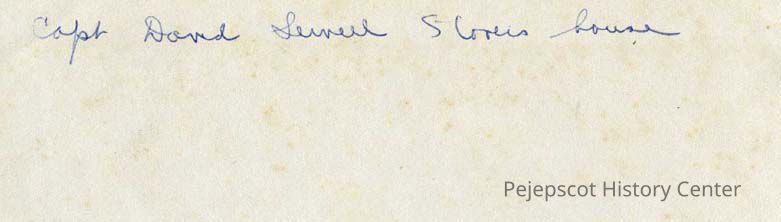 Capt David Sewell Stovers house
Pejepscot History Center